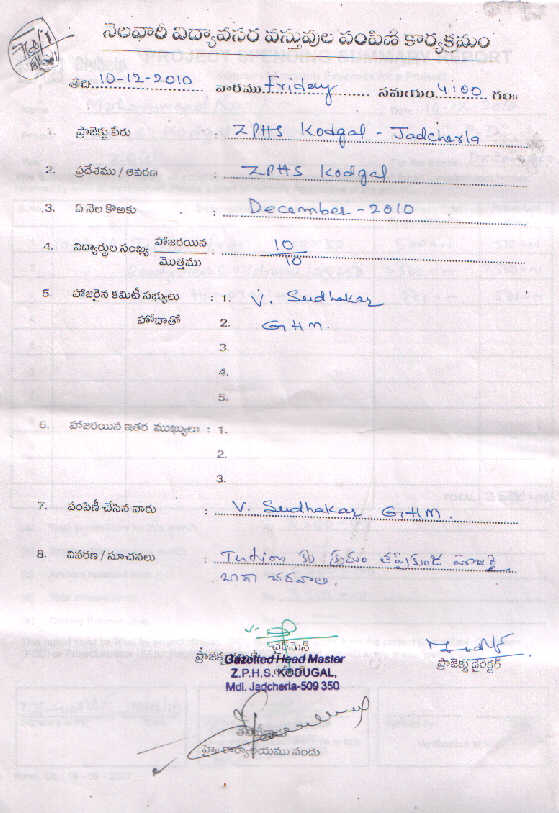 నెలవారీ విద్యావసర వస్తువుల పంపిణీ కార్యక్రమం
తేది. 10-12-2010 వారము Friday సమయం 4:00 గం॥
1. ప్రాజెక్టు పేరు : ZPHS Kodgal - Jadcherla
2. ప్రదేశము / ఆవరణ : ZPHS Kodgal
3. ఏ నెల కొఱకు : December - 2010
4. విద్యార్థుల సంఖ్య హాజరయిన : 10
మొత్తము 10
5. హాజరైన కమిటీ సభ్యులు : 1. V. Sudhakar
హోదాతో 2. GHM.
3.
4.
5.
6. హాజరయిన ఇతర ముఖ్యులు : 1.
2.
3.
7. పంపిణీ చేసిన వారు : V. Sudhakar GHM.
8. వివరణ / సూచనలు : Tution కు క్రమం తప్పకుండా హాజరై
బాగా చదవాలి.
ఛైర్మెన్
ప్రాజెక్టు
Gazetted Head Master
Z.P.H.S. KODUGAL,
Mdl. Jadcherla-509 350
ప్రాజెక్టు డైరెక్టర్
హై॥ కార్యాలయము నందు